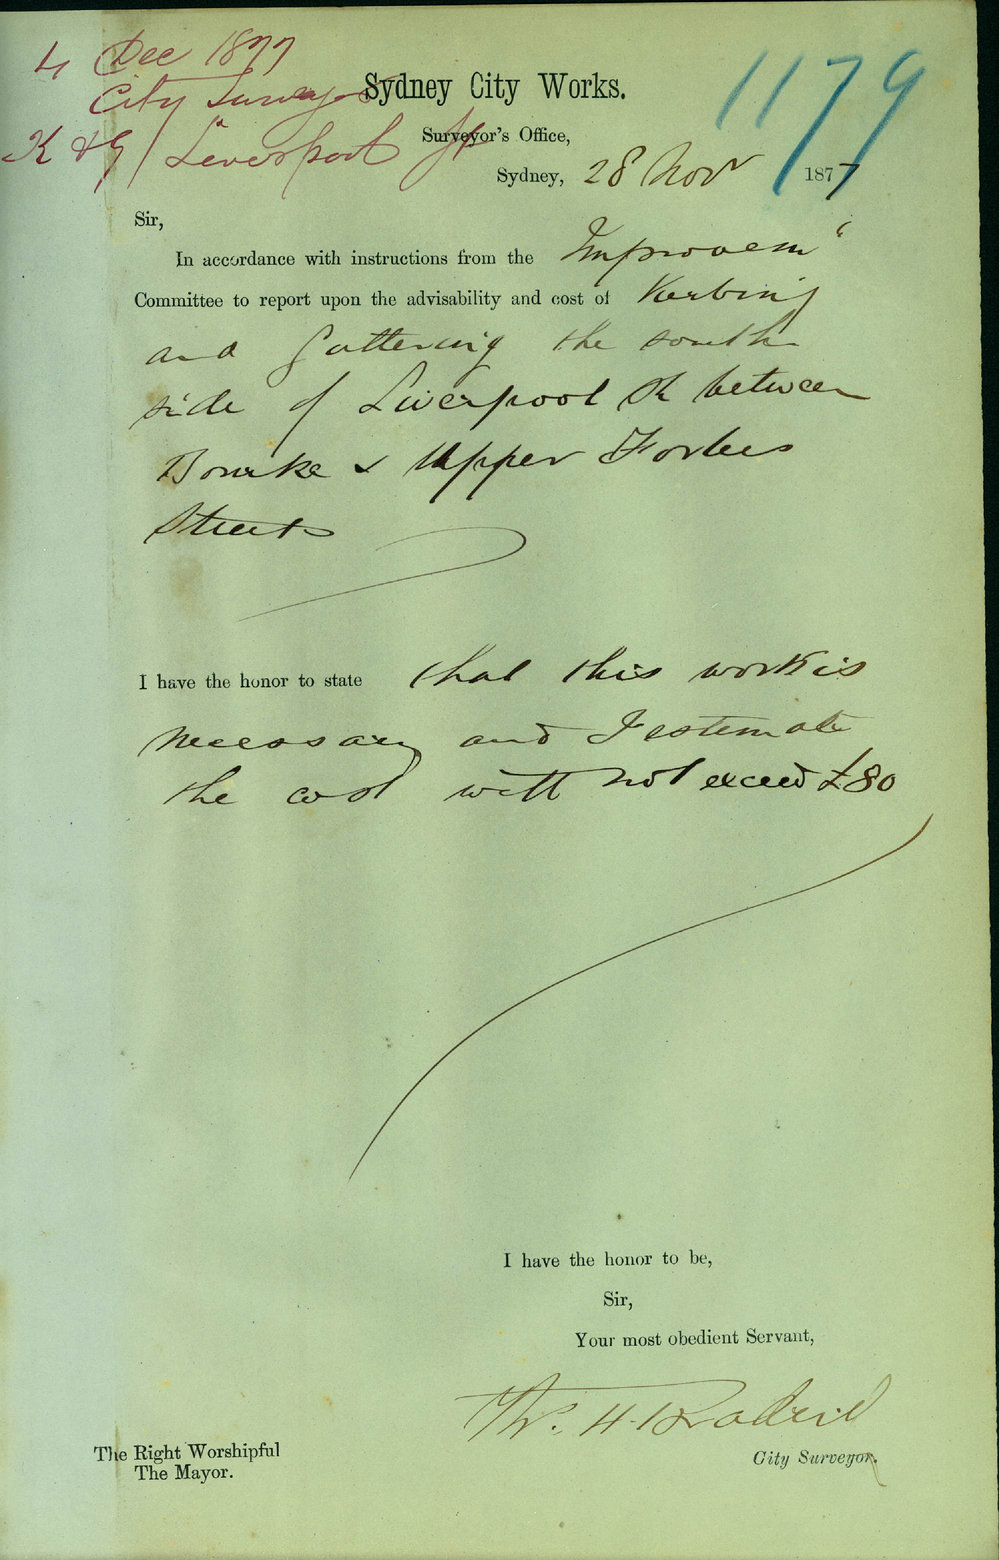 4 Dec 1877
City Surveyor
K & G / Liverpool St
1179
Sydney City Works.
Surveyor's Office,
Sydney, 28 Novr 1877
Sir,
In accordance with instructions from the "Improvem"
Committee to report upon the advisability and cost of Kerbing
and Guttering the south
side of Liverpool St between
Bourke & Upper Forbes
Streets
I have the honor to state that this work is
necessary and I estimate
the cost will not exceed £80
I have the honor to be,
Sir,
Your most obedient Servant,
City Surveyor.
The Right Worshipful
The Mayor.